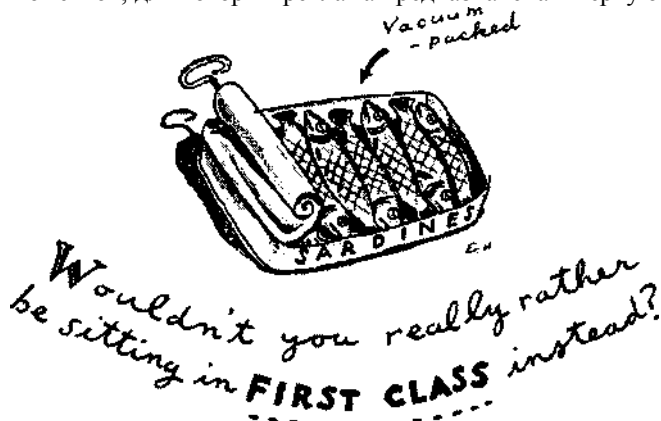 Vacuum
- packed
SARDINES
E.H
Wouldn't you really rather
be sitting in FIRST CLASS instead?